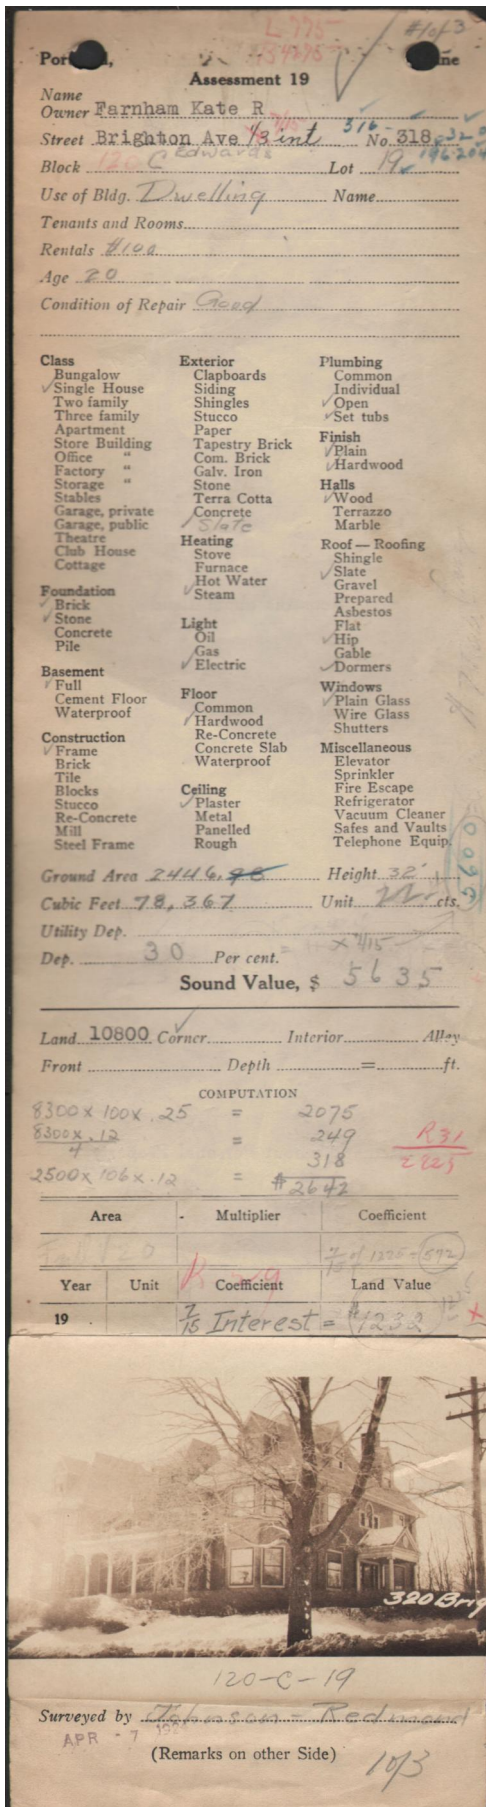 L-775
B4295
#1 of 3
Assessment 19
Name
Owner Farnham Kate R
7/15
316-
Street Brighton Ave 1/3 int No. 318, 320
Edwards
196-204
Block 120 C Lot 19
Use of Bldg. Dwelling Name
Tenants and Rooms
Rentals $100
Age 20
Condition of Repair Good
Class
Bungalow
Single House
Two family
Three family
Apartment
Store Building
Office "
Factory "
Storage "
Stables
Garage, private
Garage, public
Theatre
Club House
Cottage
Foundation
Brick
Stone
Concrete
Pile
Basement
Full
Cement Floor
Waterproof
Construction
Frame
Brick
Tile
Blocks
Stucco
Re-Concrete
Mill
Steel Frame
Exterior
Clapboards
Siding
Shingles
Stucco
Paper
Tapestry Brick
Com. Brick
Galv. Iron
Stone
Terra Cotta
Concrete
Slate
Heating
Stove
Furnace
Hot Water
Steam
Light
Oil
Gas
Electric
Floor
Common
Hardwood
Re-Concrete
Concrete Slab
Waterproof
Ceiling
Plaster
Metal
Panelled
Rough
Plumbing
Common
Individual
Open
Set tubs
Finish
Plain
Hardwood
Halls
Wood
Terrazzo
Marble
Roof — Roofing
Shingle
Slate
Gravel
Prepared
Asbestos
Flat
Hip
Gable
Dormers
Windows
Plain Glass
Wire Glass
Shutters
Miscellaneous
Elevator
Sprinkler
Fire Escape
Refrigerator
Vacuum Cleaner
Safes and Vaults
Telephone Equip.
Ground Area 2446. Height 32'
Cubic Feet 78,367 Unit cts.
Utility Dep.
x 7/15
Dep. 30 Per cent.
Sound Value, $ 5635
Land 10800 Corner Interior Alley
Front Depth = ft.
COMPUTATION
8300 x 100 x .25 = 2075
8300 x .12 = 249
4
318
R31
2825
2500 x 106 x .12 = $2642
Area - Multiplier Coefficient
7/15 of 1225 = 572
Year Unit Coefficient Land Value
19 7/15 Interest = $1232
320 Brig
120-C-19
Surveyed by Johnson - Redmond
APR - 7
(Remarks on other Side)
1 of 3